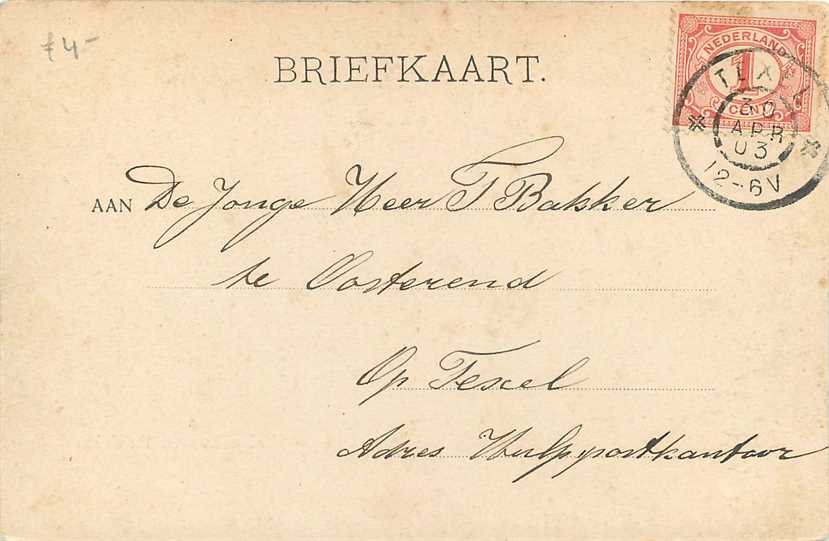 £4-
BRIEFKAART.
NEDERLAND
1
CENT
TEXEL
30
APR
03
12-6V
AAN De Jonge Heer T Bakker
te Oosterend
Op Texel
Adres Hulppostkantoor